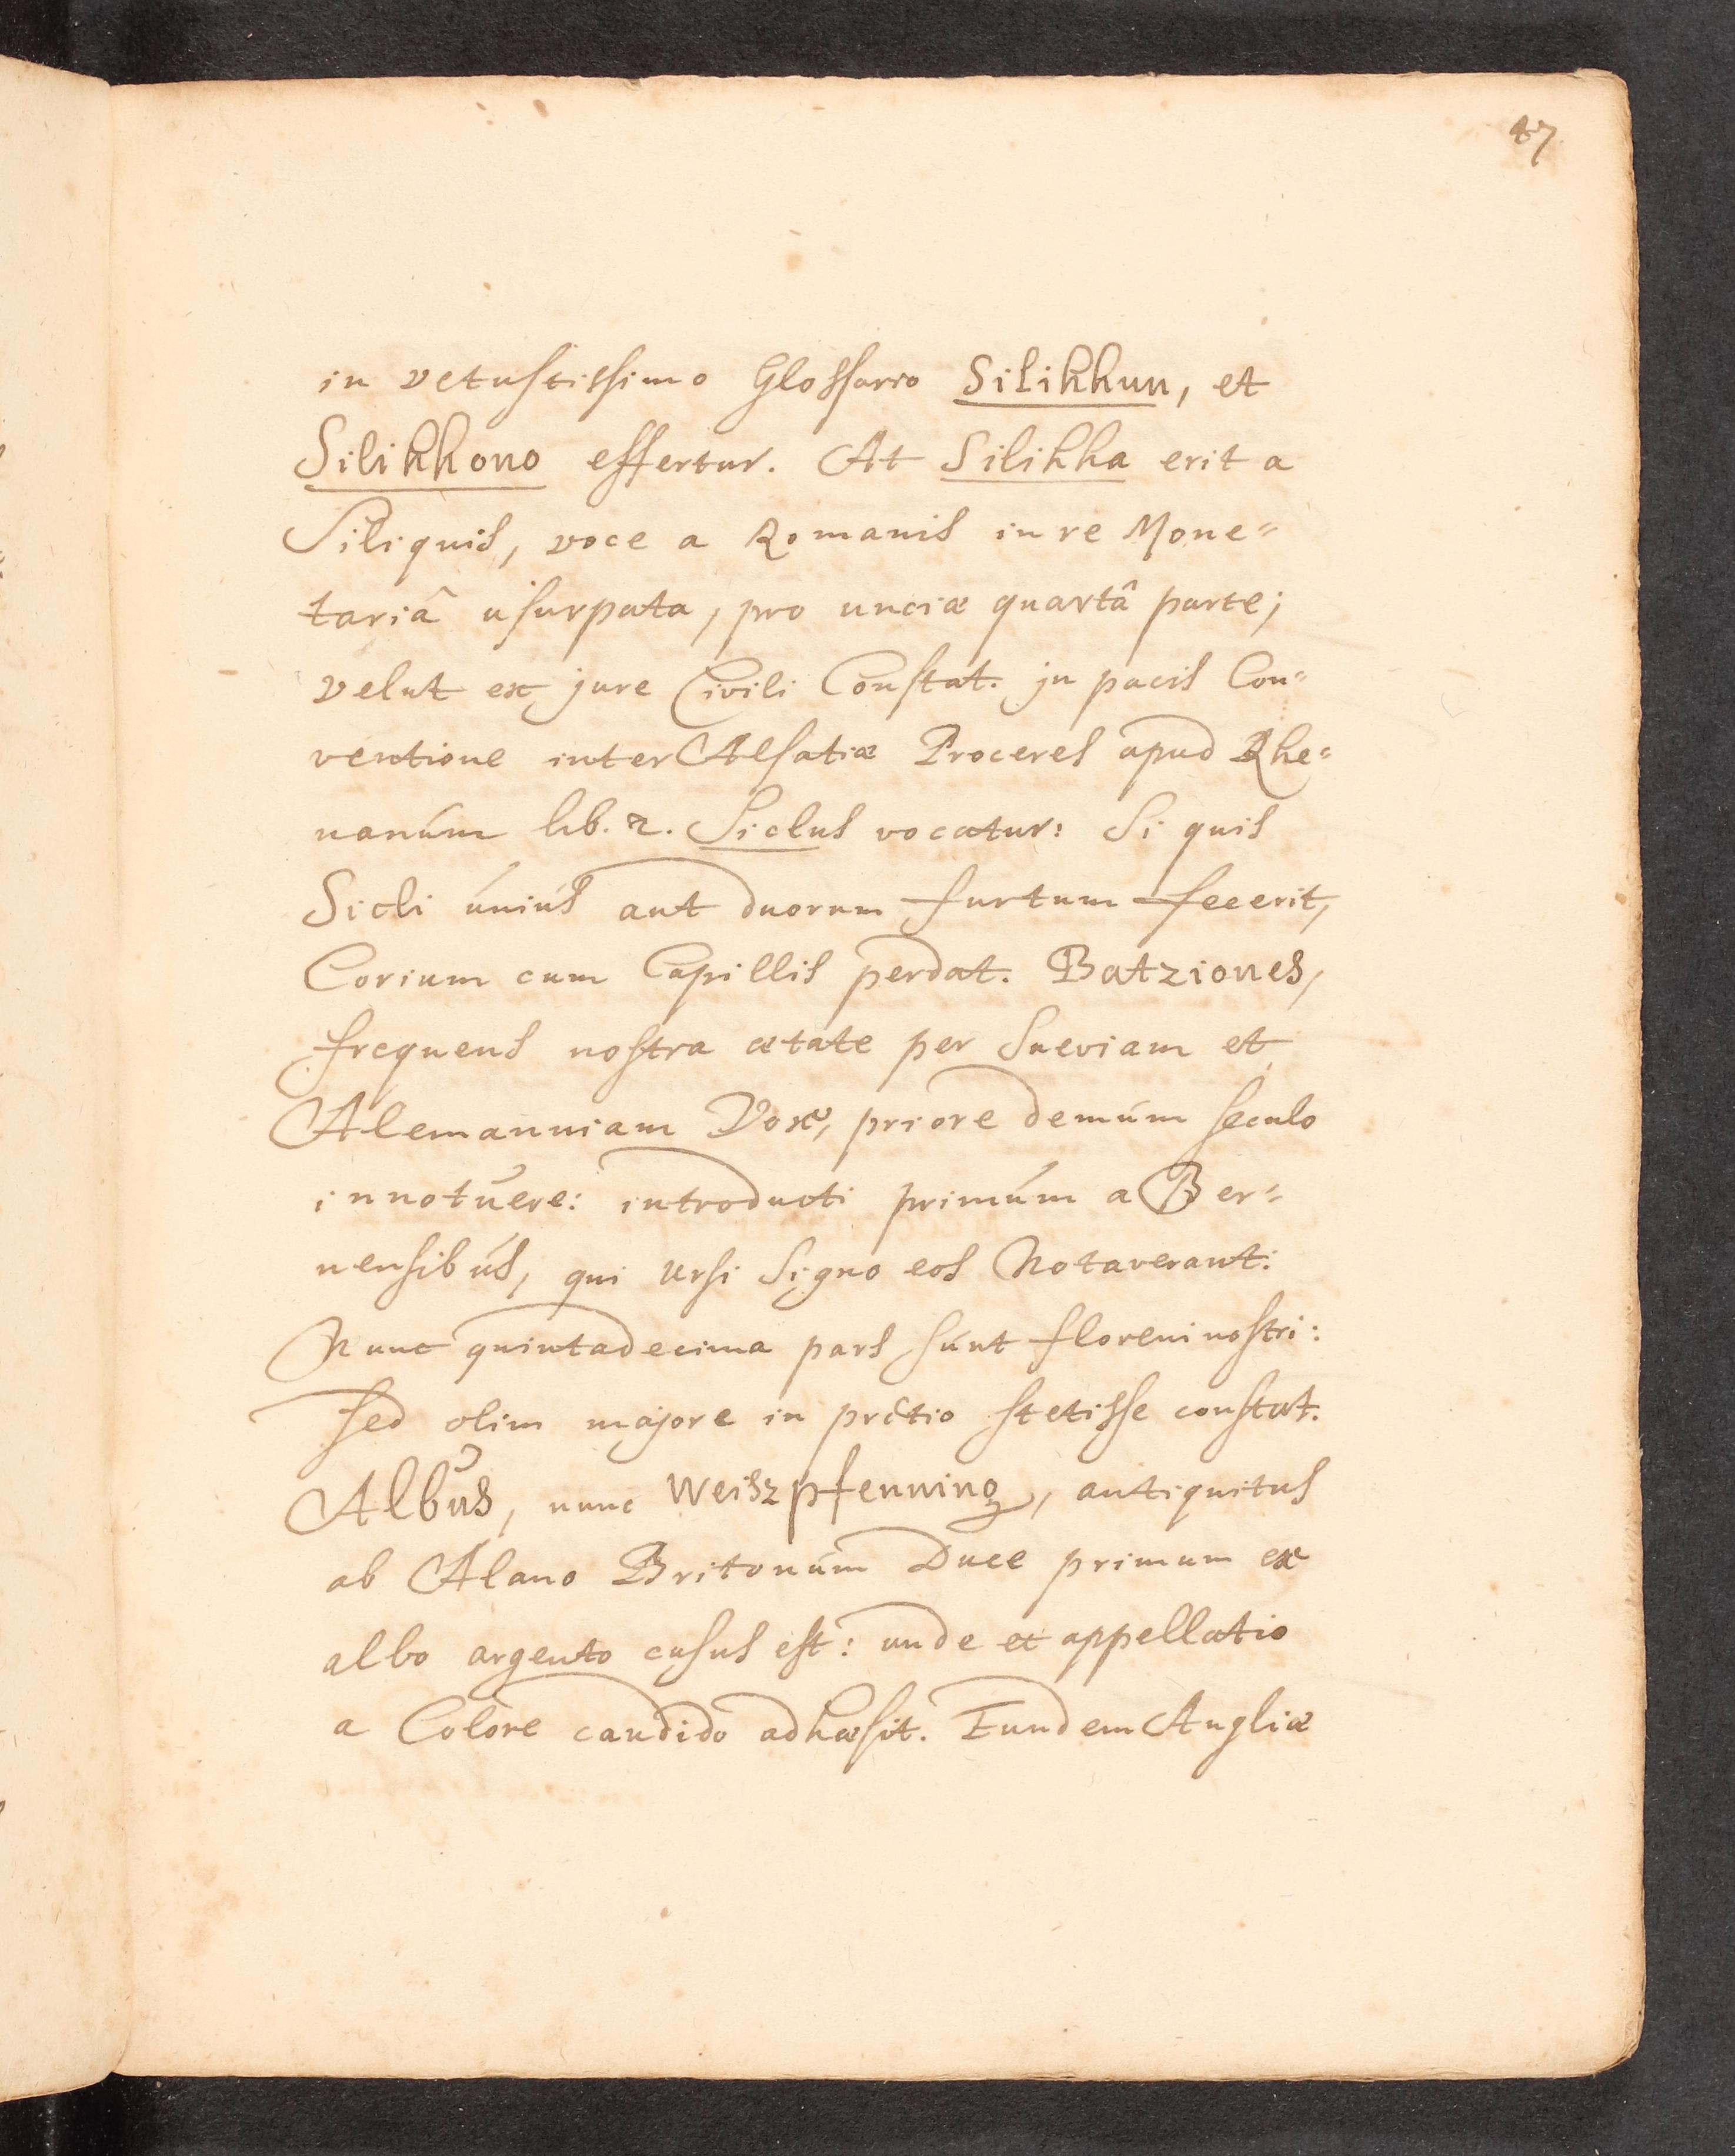 47
in vetustissimo Glossario Silihhun, et
Silihhono effertur. At Silihha erit a
Siliquis, voce a Romanis in re Mone=
tariâ usurpata, pro unciæ quartâ parte;
velut ex jure Civili Constat. jn pacis Con=
ventione inter Alsatiæ Proceres apud Rhe=
nanúm lib. 2. Siclus vocatur: Si quis
Sicli úniús aut duorum furtum fecerit,
Corium cum Capillis perdat. Batziones,
frequens nostra ætate per Sueviam et
Alemanniam Vox, priore demúm seculo
innotúere: introducti primúm a Ber=
nensibús, qui ursi Signo eos Notaverant:
Nunc quintadecima pars súnt floreni nostri:
sed olim majore in prêtio stetisse constat.
Albus, nunc Weiszpfenning, antiquitus
ab Alano Britonúm Duce primum ex
albo argento cusus est: unde et appellatio
a Colore candido adhæsit. Eundem Angliæ